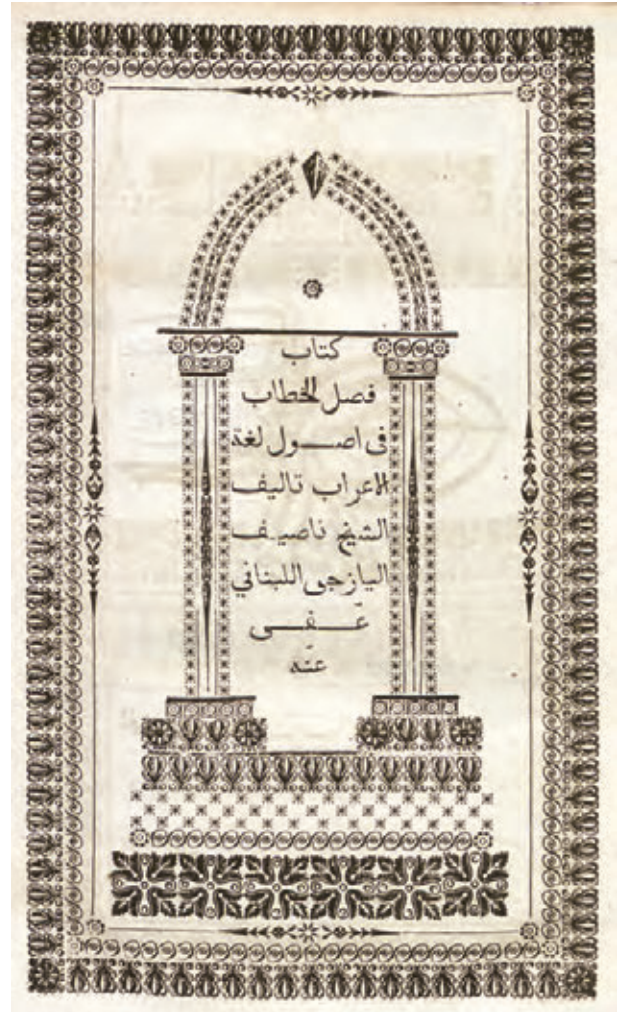 كتاب
فصل الخطاب
فى اصول لغة
الاعراب تاليف
الشيخ ناصيف
اليازجى اللبناني
عُفى
عنه